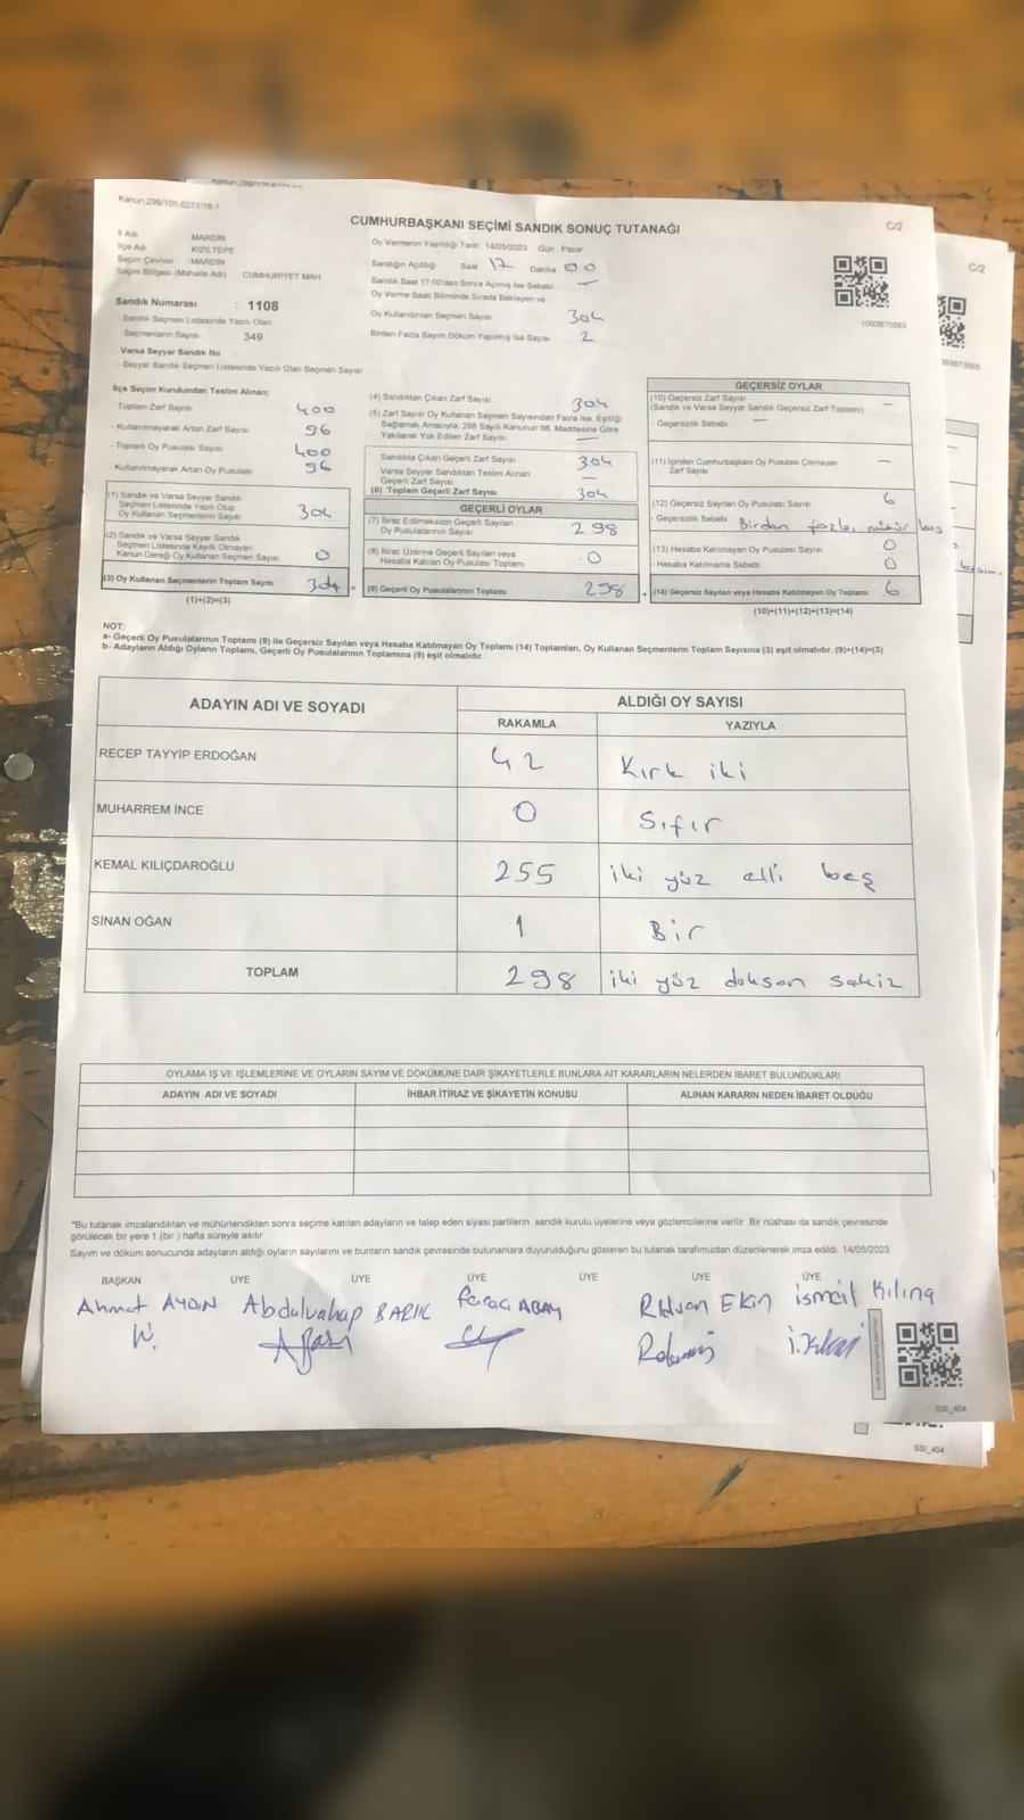 Kanun:298/101-0271/16-1
CUMHURBAŞKANI SEÇİMİ SANDIK SONUÇ TUTANAĞI
C/2
İl Adı MARDİN
İlçe Adı KIZILTEPE
Seçim Çevresi MARDİN
Seçim Bölgesi (Mahalle Adı) CUMHURİYET MAH.
Sandık Numarası : 1108
Sandık Seçmen Listesinde Yazılı Olan
Seçmenlerin Sayısı 349
Varsa Seyyar Sandık No
Seyyar Sandık Seçmen Listesinde Yazılı Olan Seçmen Sayısı
Oy Vermenin Yapıldığı Tarih: 14/05/2023 Gün: Pazar
Sandığın Açıldığı Saat 17 Dakika 00
Sandık Saat 17:00'den Sonra Açılmış İse Sebebi —
Oy Verme Saati Bitiminde Sırada Bekleyen ve
Oy Kullandırılan Seçmen Sayısı 304
Birden Fazla Sayım Döküm Yapılmış İse Sayısı 2
İlçe Seçim Kurulundan Teslim Alınan;
Toplam Zarf Sayısı 400
- Kullanılmayarak Artan Zarf Sayısı 96
- Toplam Oy Pusulası Sayısı 400
- Kullanılmayarak Artan Oy Pusulası 96
(1) Sandık ve Varsa Seyyar Sandık
Seçmen Listesinde Yazılı Olup
Oy Kullanan Seçmenlerin Sayısı 304
(2) Sandık ve Varsa Seyyar Sandık
Seçmen Listesinde Kayıtlı Olmayan
Kanun Gereği Oy Kullanan Seçmen Sayısı 0
(3) Oy Kullanan Seçmenlerin Toplam Sayısı 304
(1)+(2)=(3)
(4) Sandıktan Çıkan Zarf Sayısı 304
(5) Zarf Sayısı Oy Kullanan Seçmen Sayısından Fazla İse, Eşitliği
Sağlamak Amacıyla, 298 Sayılı Kanunun 98. Maddesine Göre
Yakılarak Yok Edilen Zarf Sayısı —
Sandıkta Çıkan Geçerli Zarf Sayısı 304
Varsa Seyyar Sandıktan Teslim Alınan
Geçerli Zarf Sayısı —
(6) Toplam Geçerli Zarf Sayısı 304
GEÇERLİ OYLAR
(7) İtiraz Edilmeksizin Geçerli Sayılan
Oy Pusulalarının Sayısı 298
(8) İtiraz Üzerine Geçerli Sayılan veya
Hesaba Katılan Oy Pusulası Toplamı 0
(9) Geçerli Oy Pusulalarının Toplamı 298
GEÇERSİZ OYLAR
(10) Geçersiz Zarf Sayısı —
(Sandık ve Varsa Seyyar Sandık Geçersiz Zarf Toplamı)
- Geçersizlik Sebebi —
(11) İçinden Cumhurbaşkanı Oy Pusulası Çıkmayan —
Zarf Sayısı
(12) Geçersiz Sayılan Oy Pusulası Sayısı 6
- Geçersizlik Sebebi Birdan fazla mühür bas
(13) Hesaba Katılmayan Oy Pusulası Sayısı 0
- Hesaba Katılmama Sebebi 0
(14) Geçersiz Sayılan veya Hesaba Katılmayan Oy Toplamı 6
(10)+(11)+(12)+(13)=(14)
NOT:
a- Geçerli Oy Pusulalarının Toplamı (9) ile Geçersiz Sayılan veya Hesaba Katılmayan Oy Toplamı (14) Toplamları, Oy Kullanan Seçmenlerin Toplam Sayısına (3) eşit olmalıdır. (9)+(14)=(3)
b- Adayların Aldığı Oyların Toplamı, Geçerli Oy Pusulalarının Toplamına (9) eşit olmalıdır.
ADAYIN ADI VE SOYADI ALDIĞI OY SAYISI
RAKAMLA YAZIYLA
RECEP TAYYİP ERDOĞAN 42 Kırk iki
MUHARREM İNCE 0 Sıfır
KEMAL KILIÇDAROĞLU 255 iki yüz elli beş
SİNAN OĞAN 1 Bir
TOPLAM 298 iki yüz doksan sakiz
OYLAMA İŞ VE İŞLEMLERİNE VE OYLARIN SAYIM VE DÖKÜMÜNE DAİR ŞİKAYETLERLE BUNLARA AİT KARARLARIN NELERDEN İBARET BULUNDUKLARI
ADAYIN ADI VE SOYADI İHBAR İTİRAZ VE ŞİKAYETİN KONUSU ALINAN KARARIN NEDEN İBARET OLDUĞU
"Bu tutanak imzalandıktan ve mühürlendikten sonra seçime katılan adayların ve talep eden siyasi partilerin, sandık kurulu üyelerine veya gözlemcilerine verilir. Bir nüshası da sandık çevresinde
görülecek bir yere 1 (bir ) hafta süreyle asılır.
Sayım ve döküm sonucunda adayların aldığı oyların sayılarını ve bunların sandık çevresinde bulunanlara duyurulduğunu gösteren bu tutanak tarafımızdan düzenlenerek imza edildi. 14/05/2023
BAŞKAN ÜYE ÜYE ÜYE ÜYE ÜYE ÜYE
Ahmet AYDIN Abdulvahap BARIK Faraç ABAY Rıdvan Ekin ismail Kılınç
SSİ_404
C/2
SSİ_404